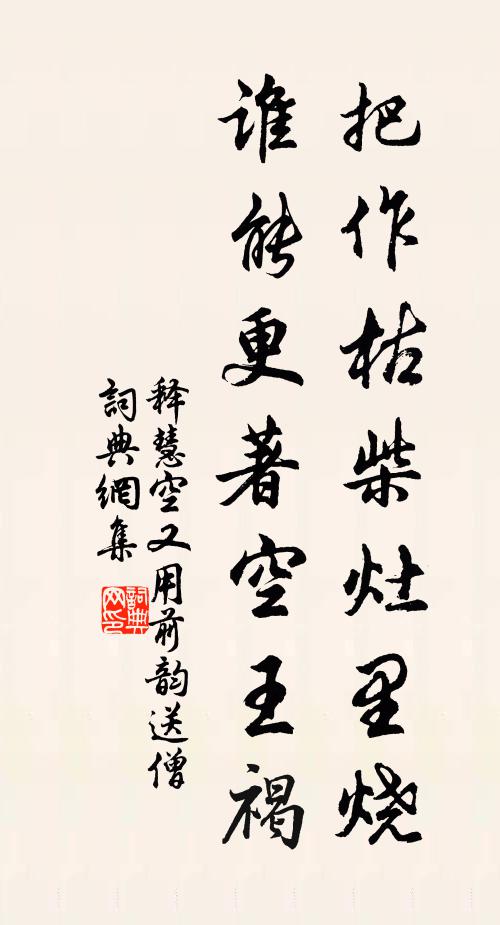 把作枯柴灶里烧
谁能更著空王褐
释慧空又用前韵送僧
詞典網集
詞典网印